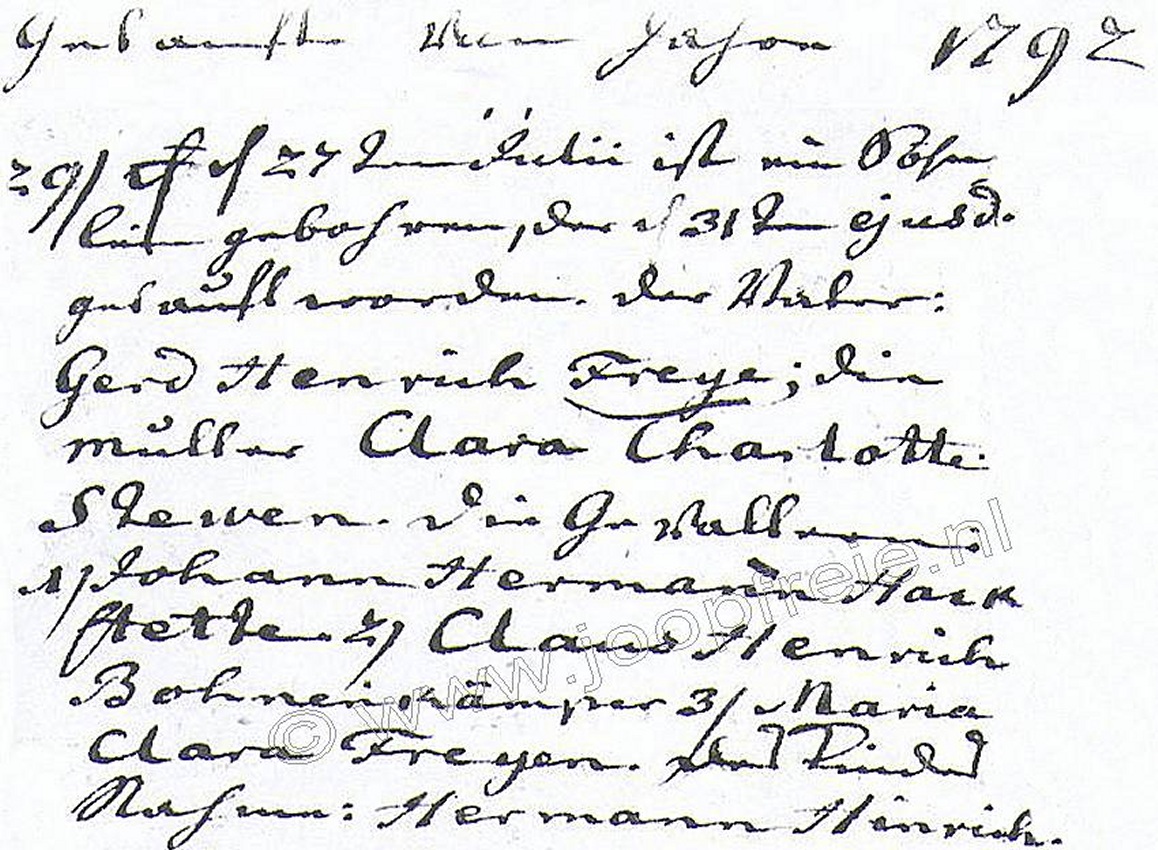 Getaufte vom Jahre 1792
29) d 27ten Julii ist ein Söhn
lein gebohren, der d 31ten ejusd.
getauft worden. der Vater:
Gerd Henrich Freye; die
Mutter Clara Charlotte
Stewen. die Gevattern:
1) Johann Hermann Hack
stette. 2) Claus Henrich
Bohnenkämper 3) Maria
Clara Freyen. des Kindes
Nahme: Hermann Hinrich.
© www.joopfreje.nl